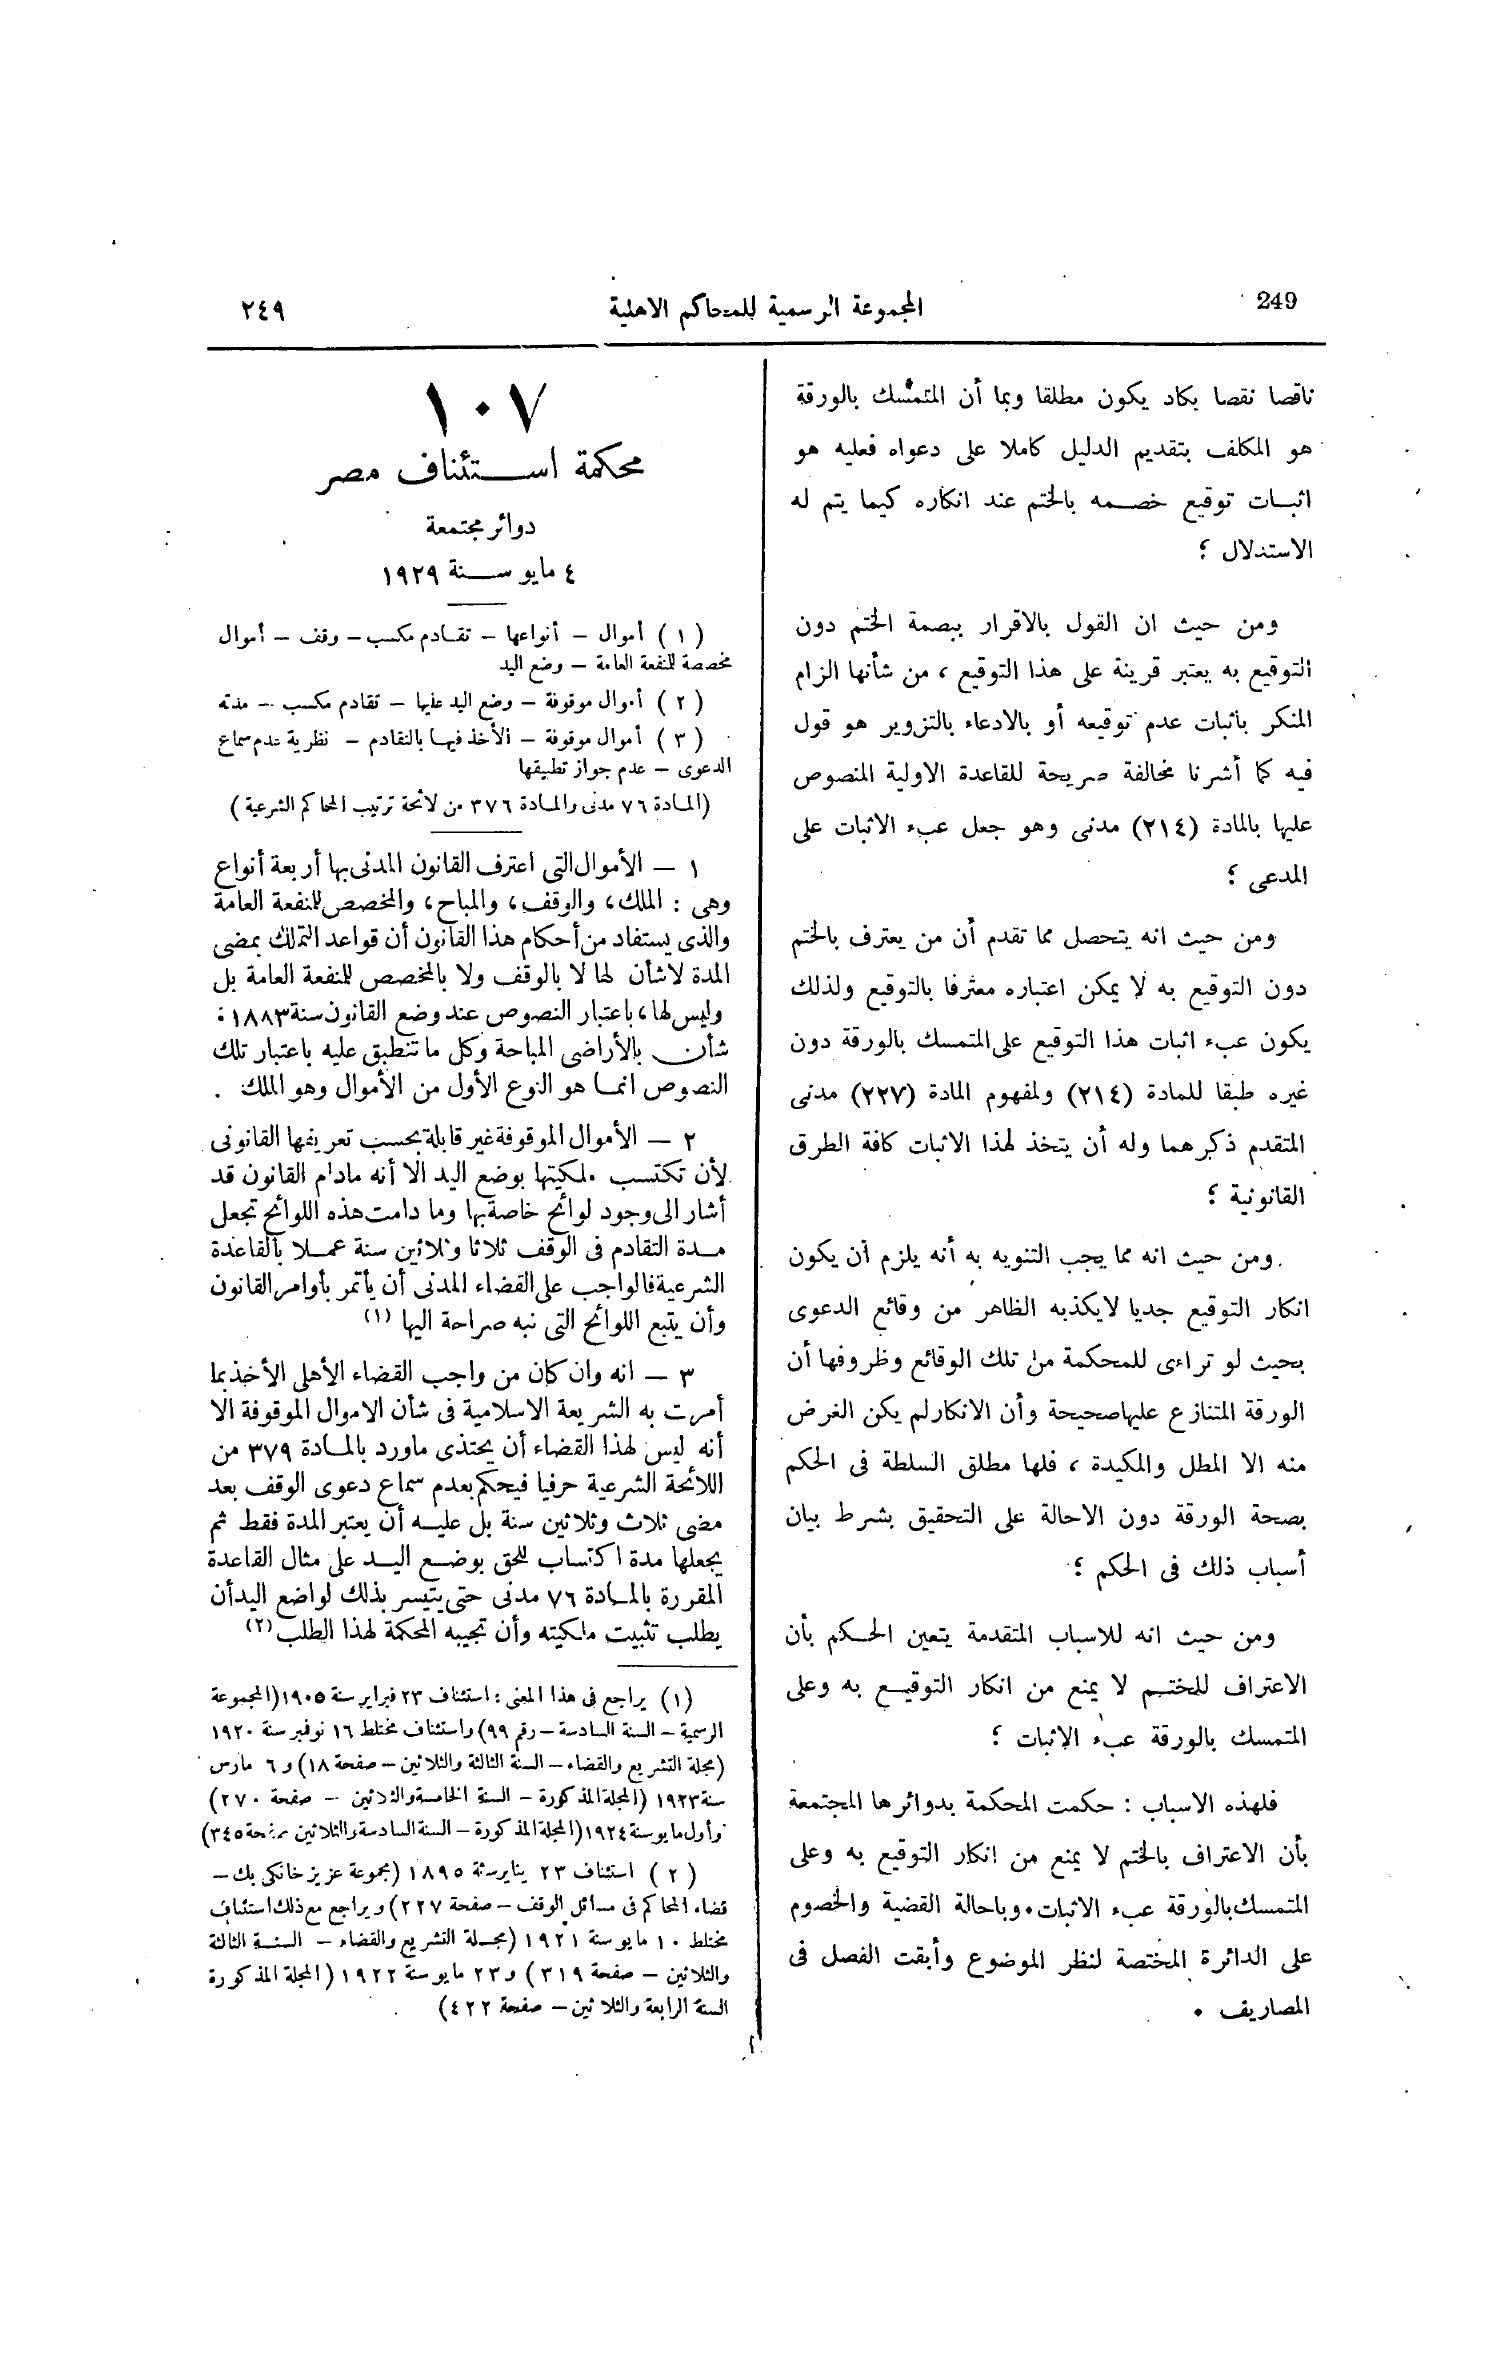 249
المجموعة الرسمية للمحاكم الاهلية
٢٤٩
ناقصا نقصا يكاد يكون مطلقا وبما أن المتمسك بالورقة
هو المكلف بتقديم الدليل كاملا على دعواه فعليه هو
اثبات توقيع خصمه بالختم عند انكاره كيما يتم له
الاستدلال ؛
ومن حيث ان القول بالاقرار ببصمة الختم دون
التوقيع به يعتبر قرينة على هذا التوقيع ، من شأنها الزام
المنكر باثبات عدم توقيعه أو بالادعاء بالتزوير هو قول
فيه كما أشرنا مخالفة صريحة للقاعدة الاولية المنصوص
عليها بالمادة (٢١٤) مدنى وهو جعل عبء الاثبات على
المدعى ؛
ومن حيث انه يتحصل مما تقدم أن من يعترف بالختم
دون التوقيع به لا يمكن اعتباره معترفا بالتوقيع ولذلك
يكون عبء اثبات هذا التوقيع على المتمسك بالورقة دون
غيره طبقا للمادة (٢١٤) ولمفهوم المادة (٢٢٧) مدنى
المتقدم ذكرهما وله أن يتخذ لهذا الاثبات كافة الطرق
القانونية ؛
ومن حيث انه مما يجب التنويه به أنه يلزم أن يكون
انكار التوقيع جديا لا يكذبه الظاهر من وقائع الدعوى
بحيث لو تراءى للمحكمة من تلك الوقائع وظروفها أن
الورقة المتنازع عليها صحيحة وأن الانكار لم يكن الغرض
منه الا المطل والمكيدة ، فلها مطلق السلطة فى الحكم
بصحة الورقة دون الاحالة على التحقيق بشرط بيان
أسباب ذلك فى الحكم ؛
ومن حيث انه للاسباب المتقدمة يتعين الحكم بأن
الاعتراف للختم لا يمنع من انكار التوقيع به وعلى
المتمسك بالورقة عبء الاثبات ؛
فلهذه الاسباب : حكمت المحكمة بدوائرها المجتمعة
بأن الاعتراف بالختم لا يمنع من انكار التوقيع به وعلى
المتمسك بالورقة عبء الاثبات. وباحالة القضية والخصوم
على الدائرة المختصة لنظر الموضوع وأبقت الفصل فى
المصاريف .
١٠٧
محكمة استئناف مصر
دوائر مجتمعة
٤ مايو سنة ١٩٢٩
(١) أموال – أنواعها – تقادم مكسب – وقف – أموال
مخصصة للمنفعة العامة – وضع اليد
(٢) أموال موقوفة – وضع اليد عليها – تقادم مكسب – مدته
(٣) أموال موقوفة – الأخذ فيها بالتقادم – نظرية عدم سماع
الدعوى – عدم جواز تطبيقها
(المادة ٧٦ مدنى والمادة ٣٧٦ من لائحة ترتيب المحاكم الشرعية)
١ – الأموال التى اعترف القانون المدنى بها أربعة أنواع
وهى : الملك، والوقف، والمباح، والمخصص للمنفعة العامة
والذى يستفاد من أحكام هذا القانون أن قواعد التملك بمضى
المدة لا شأن لها لا بالوقف ولا بالمخصص للمنفعة العامة بل
وليس لها، باعتبار النصوص عند وضع القانون سنة ١٨٨٣،
شأن بالأراضى المباحة وكل ما تنطبق عليه باعتبار تلك
النصوص انما هو النوع الأول من الأموال وهو الملك .
٢ – الأموال الموقوفة غير قابلة بحسب تعريفها القانونى
لأن تكتسب ملكيتها بوضع اليد الا أنه مادام القانون قد
أشار الى وجود لوائح خاصة بها وما دامت هذه اللوائح تجعل
مدة التقادم فى الوقف ثلاثا وثلاثين سنة عملا بالقاعدة
الشرعية فالواجب على القضاء المدنى أن يأتمر بأوامر القانون
وأن يتبع اللوائح التى نبه صراحة اليها (١)
٣ – انه وان كان من واجب القضاء الأهلى الأخذ بما
أمرت به الشريعة الاسلامية فى شأن الاموال الموقوفة الا
أنه ليس لهذا القضاء أن يحتذى ماورد بالمادة ٣٧٩ من
اللائحة الشرعية حرفيا فيحكم بعدم سماع دعوى الوقف بعد
مضى ثلاث وثلاثين سنة بل عليه أن يعتبر المدة فقط ثم
يجعلها مدة اكتساب للحق بوضع اليد على مثال القاعدة
المقررة بالمادة ٧٦ مدنى حتى يتيسر بذلك لواضع اليد أن
يطلب تثبيت ملكيته وأن تجيبه المحكمة لهذا الطلب (٢)
(١) يراجع فى هذا المعنى : استئناف ٢٣ فبراير سنة ١٩٠٥ (المجموعة
الرسمية – السنة السادسة – رقم ٩٩) واستئناف مختلط ١٦ نوفمبر سنة ١٩٢٠
(مجلة التشريع والقضاء – السنة الثالثة والثلاثين – صفحة ١٨) و ٦ مارس
سنة ١٩٢٣ (المجلة المذكورة – السنة الخامسة والثلاثين – صفحة ٢٧٠)
وأول مايو سنة ١٩٢٤ (المجلة المذكورة – السنة السادسة والثلاثين صفحة ٣٤٥)
(٢) استئناف ٢٣ يناير سنة ١٨٩٥ (مجموعة عزيز خانكى بك –
قضاء المحاكم فى مسائل الوقف – صفحة ٢٢٧) ويراجع مع ذلك استئناف
مختلط ١٠ مايو سنة ١٩٢١ (مجلة التشريع والقضاء – السنة الثالثة
والثلاثين – صفحة ٣١٩) و ٢٣ مايو سنة ١٩٢٢ (المجلة المذكورة
السنة الرابعة والثلاثين – صفحة ٤٢٢)